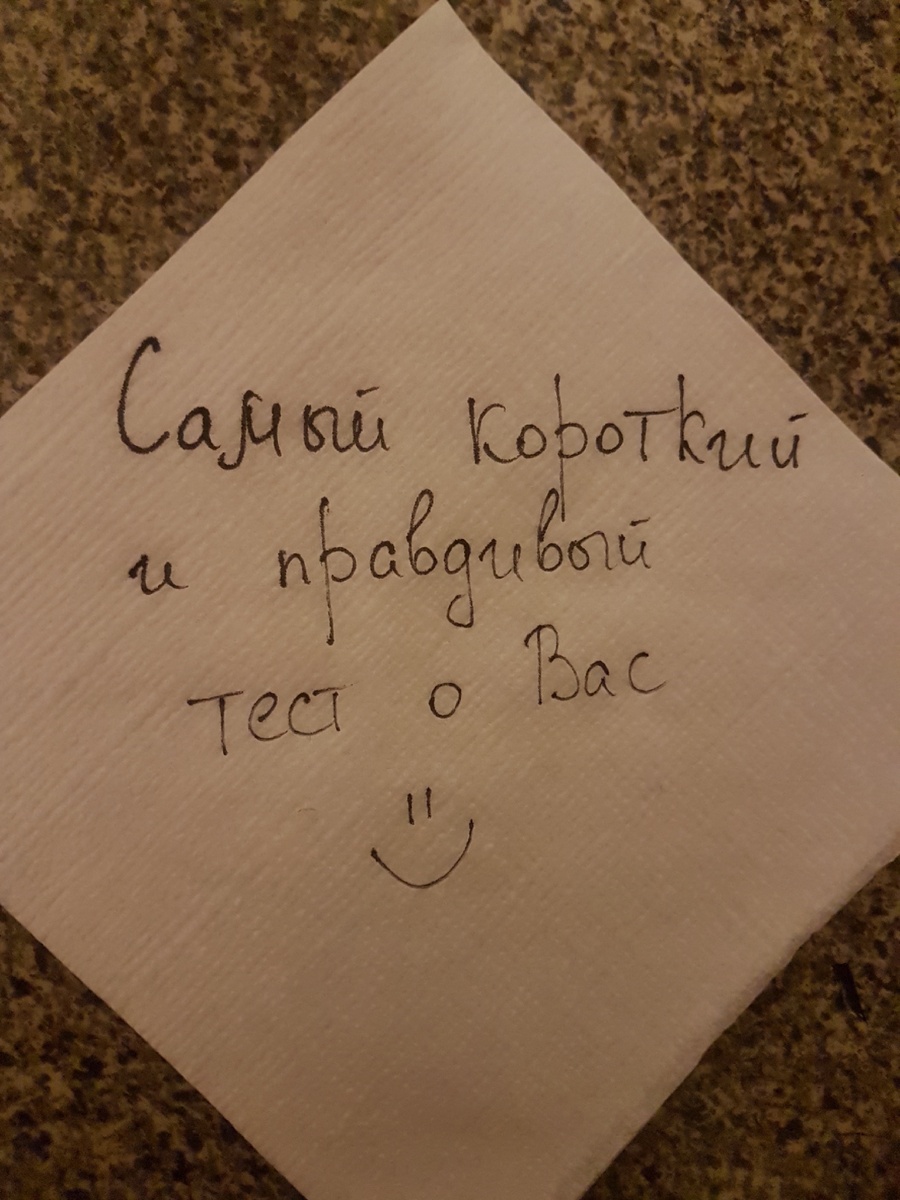 Самый короткий
и правдивый
тест о Вас